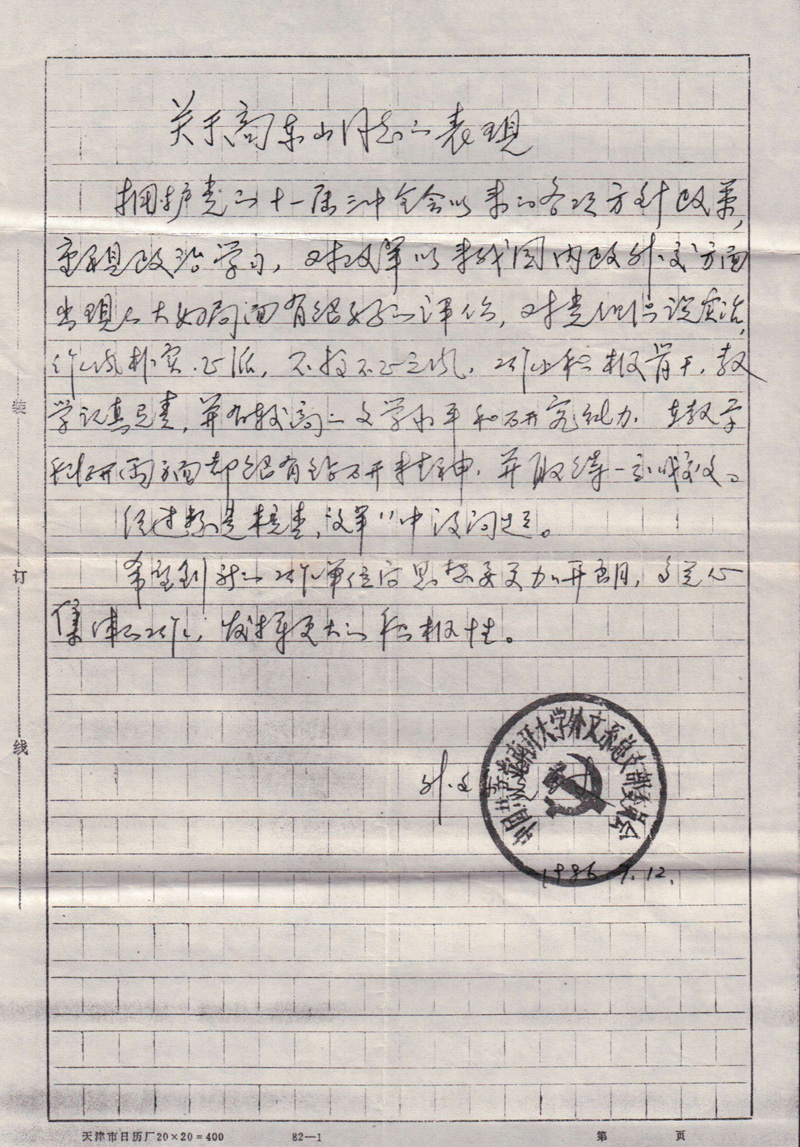 关于高东山同志的表现
拥护党的十一届三中全会以来的各项方针政策，
重视政治学习，对改革以来我国内政外交方面
出现的大好局面有很好的评价，对党组织说实话，
作风朴实、正派，不搞不正之风，工作上积极肯干，教
学认真负责，并有较高的文学水平和研究能力，在教学
科研两方面都很有钻研精神，并取得一定成效。
经过数是核查，文革中没问题。
希望到新的工作单位后思想要更加开朗，多关心
集体的工作，发挥更大的积极性。
外文
中国共产党南开大学外文系总支部委员会
1986.7.12.
装
订
线
天津市日历厂20×20=400 82—1 第 页